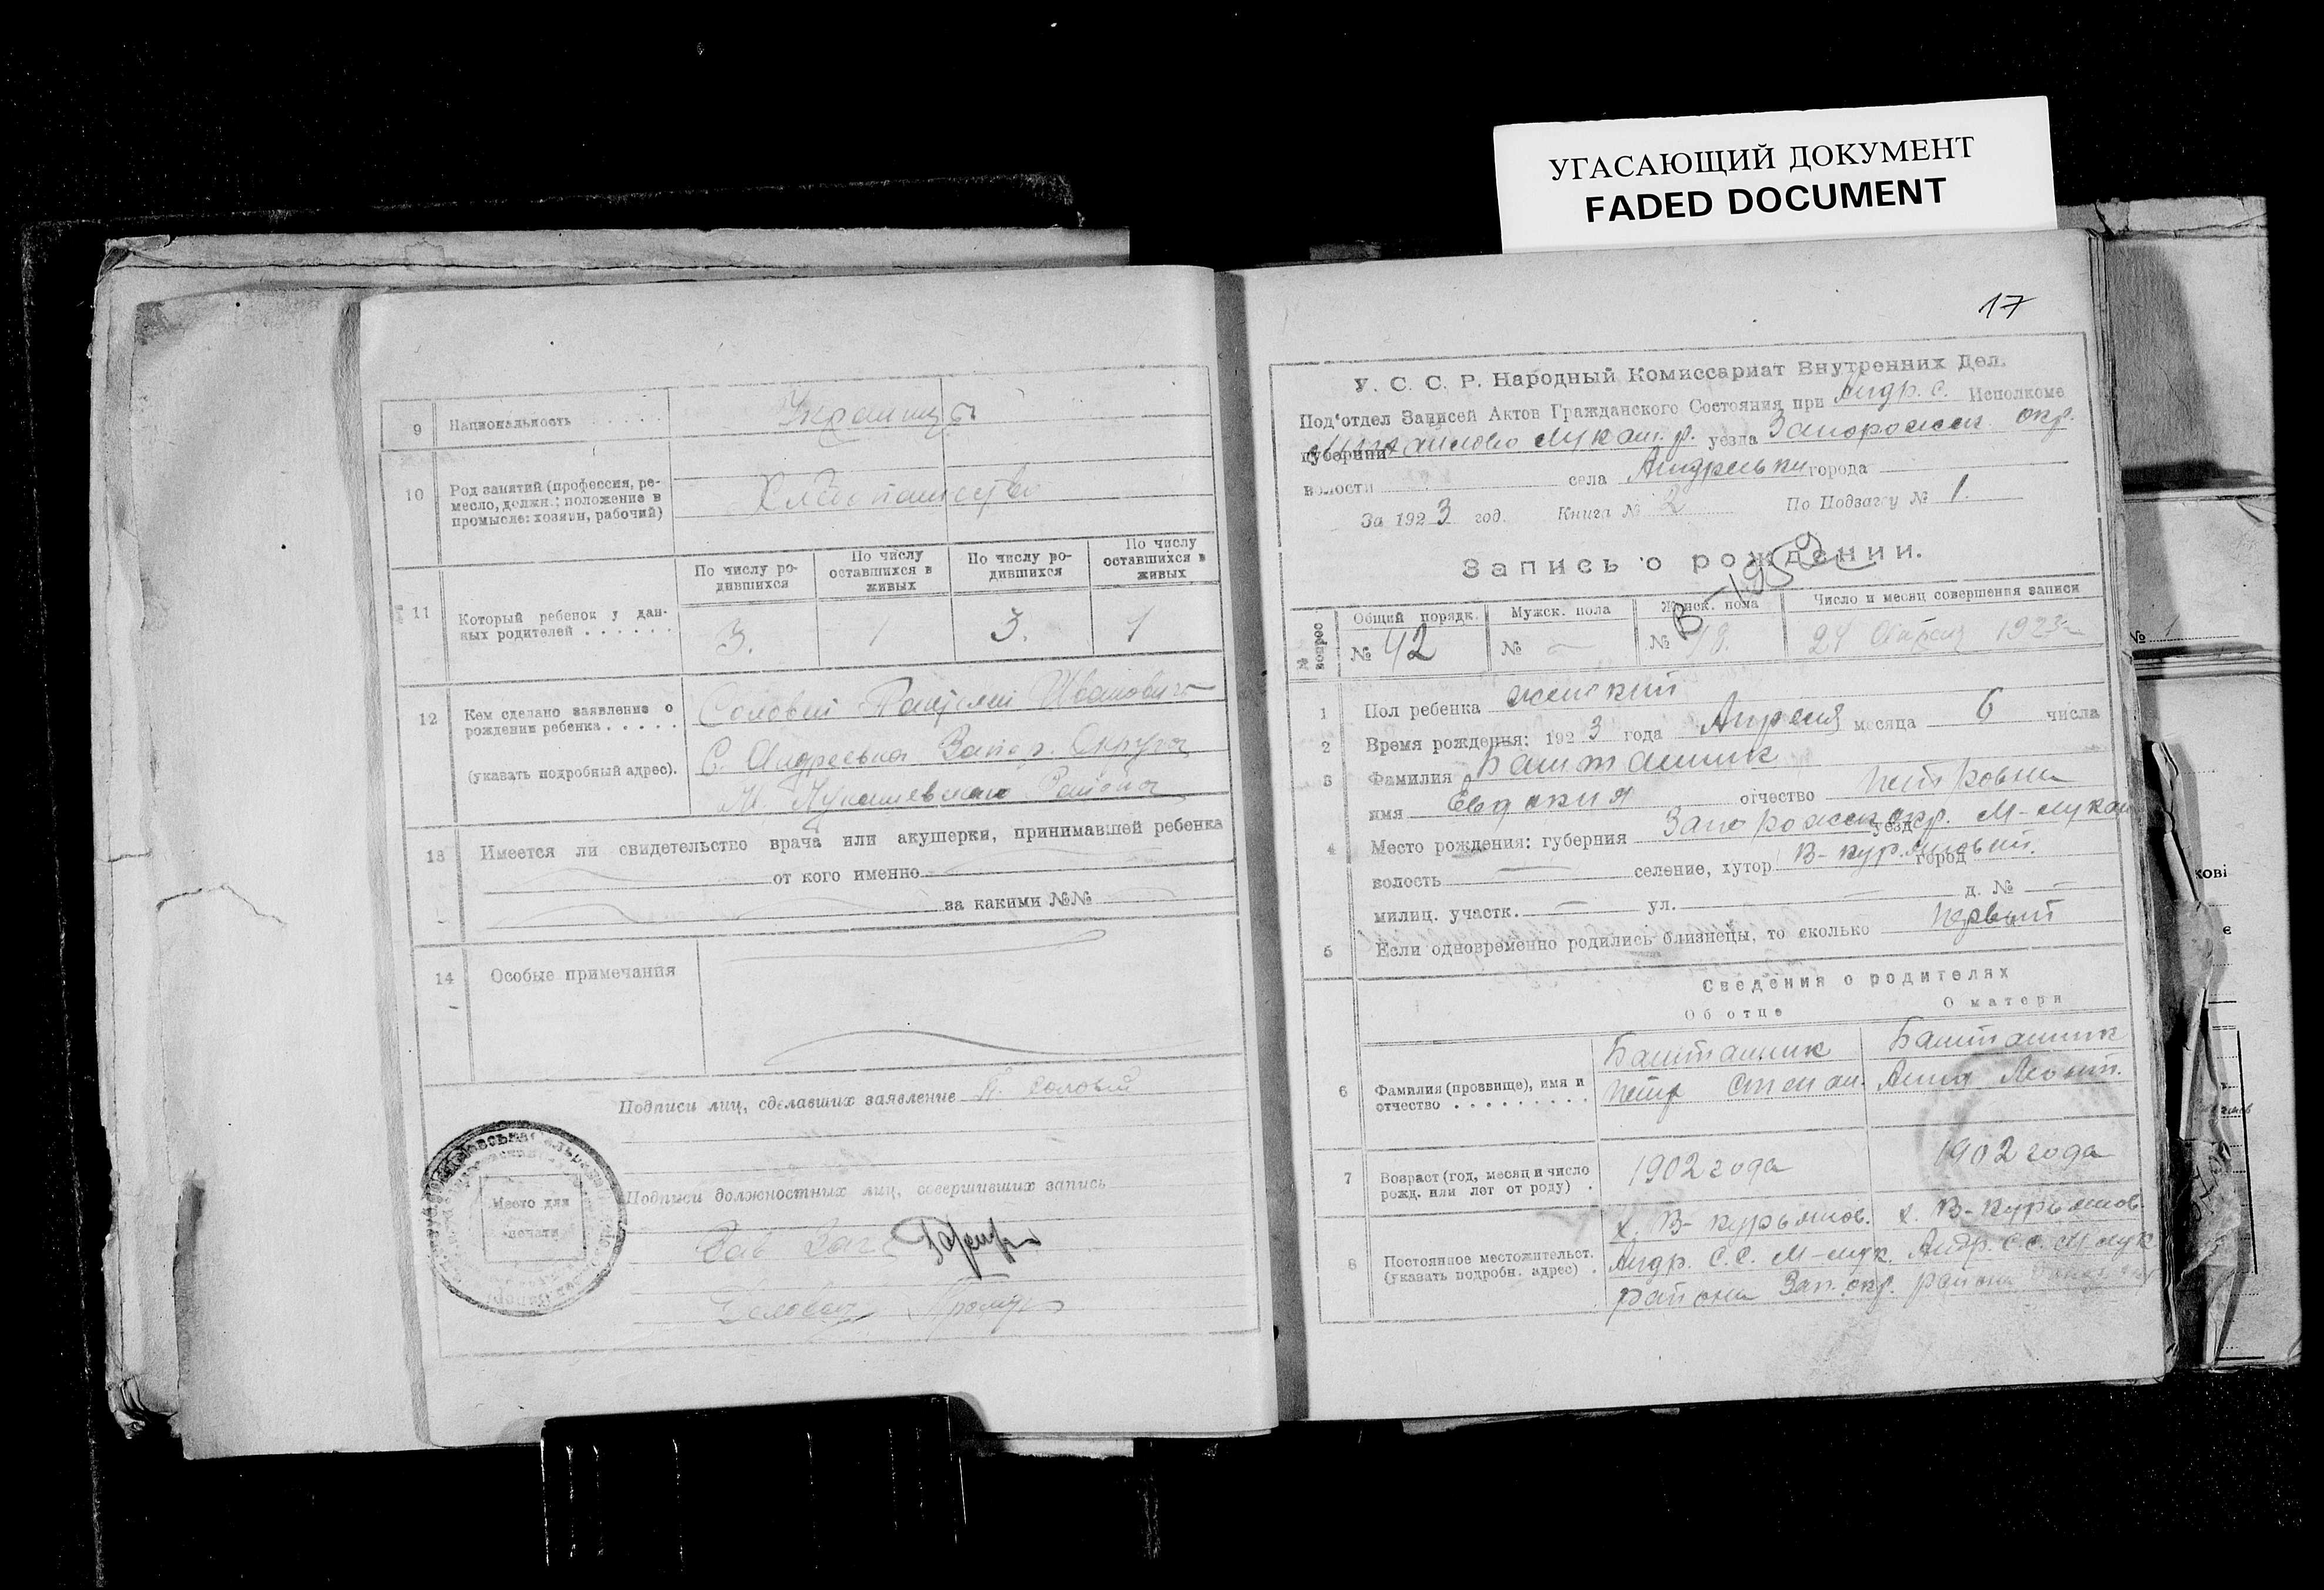 УГАСАЮЩИЙ ДОКУМЕНТ
FADED DOCUMENT
9 Национальность . . . . . Украинцы
10 Род занятий (профессия, ре-
месло, должн.; положение в
промысле: хозяин, рабочий)
Хлебопашество
По числу ро-
дившихся
По числу
оставшихся в
живых
По числу ро-
дившихся
По числу
оставшихся в
живых
11 Который ребенок у дан-
ных родителей . . . . . .
3. 1 3. 1
12 Кем сделано заявление о
рождении ребенка . . . . .
(указать подробный адрес).
Соловей Иванович
С. Андреевка Запор. Округа
М. Лукашевского Района
13 Имеется ли свидетельство врача или акушерки, принимавшей ребенка
от кого именно
за какими №№
14 Особые примечания
Подписи лиц, сделавших заявление П. Соловей
Подписи должностных лиц, совершивших запись
Место для
печати
Зав
17
У. С. С. Р. Народный Комиссариат Внутренних Дел.
Под'отдел Записей Актов Гражданского Состояния при Андр. с. Исполкоме
губернии Михайлово Лукаш. р. уезда Запорожск. окр.
волости села Андреевки города
За 1923 год. Книга № 2 По Подзагсу № 1.
Запись о рождении.
№ вопрос
Общий порядк. Мужск. пола Женск. пола Число и месяц совершения записи
№ 42 № — № 18. 24 Апреля 1923 г.
1 Пол ребенка женский
2 Время рождения: 1923 года Апреля месяца 6 числа
3 Фамилия Баштанник
имя Евдокия отчество Петровна
4 Место рождения: губерния Запорожск. окр. уезд М-лукаш
волость — селение, хутор В-курьяновый. город
милиц. участк. — ул. — д. № —
5 Если одновременно родились близнецы, то сколько первый
Сведения о родителях
Об отце О матери
6 Фамилия (прозвище), имя и
отчество . . . . . . . . .
Баштанник
Петр Степан.
Баштанник
Анна Леонт.
7 Возраст (год, месяц и число
рожд. или лет от роду) .
1902 года 1902 года
8 Постоянное местожительст.
(указать подробн. адрес) .
х. В-курьянов.
Андр. С.С. М-лук.
района Зап. окр.
х. В-курьянов.
Андр. С.С. М-лук
района
№ 1